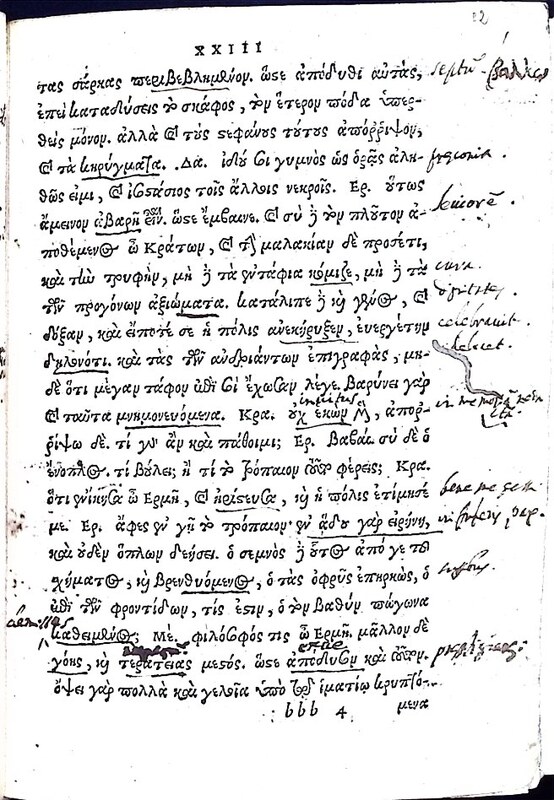 XXIII
τας σάρκας περιβεβλημένον. ὥστε ἀπόδυθι αὐτάς,
ἐπεὶ καταδύσεις τὸ σκάφος, τὸν ἕτερον πόδα ὑπερ-
θεὶς μόνον. ἀλλὰ καὶ τοὺς στεφάνους τούτους ἀπόρριψον,
καὶ τὰ κηρύγματα. Δα. ἰδού σοι γυμνὸς ὡς ὁρᾷς ἀλη-
θῶς εἰμι, καὶ ἰσοστάσιος τοῖς ἄλλοις νεκροῖς. Ερ. οὕτως
ἄμεινον ἀβαρῆ εἶναι. ὥστε ἔμβαινε. καὶ σὺ δὲ τὸν πλοῦτον ἀ-
ποθέμενος ὦ Κράτων, καὶ τὴν μαλακίαν δὲ προσέτι,
καὶ τὴν τρυφὴν, μὴ δὲ τὰ ἐντάφια κόμιζε, μὴ δὲ τὰ
τῶν προγόνων ἀξιώματα. κατάλιπε δὲ καὶ γένος, καὶ
δόξαν, καὶ εἴποτέ σε ἡ πόλις ἀνεκήρυξεν, εὐεργέτην
δηλονότι. καὶ τὰς τῶν ἀνδριάντων ἐπιγραφὰς, μη-
δὲ ὅτι μέγαν τάφον ἐπί σοι ἔχωσαν λέγε. βαρύνει γὰρ
καὶ ταῦτα μνημονευόμενα. Κρα. οὐχ ἑκὼν μὲν, ἀπορ-
ρίψω δέ. τί γὰρ ἂν καὶ πάθοιμι; Ερ. Βαβαί. σὺ δὲ ὁ
ἔνοπλος. τί βούλει; ἢ τί τὸ τρόπαιον τοῦτο φέρεις; Κρα.
ὅτι ἐνίκησα ὦ Ερμῆ, καὶ ἠρίστευσα, καὶ ἡ πόλις ἐτίμησέ
με. Ερ. ἄφες ἐν γῇ τὸ τρόπαιον. ἐν ᾅδου γὰρ εἰρήνη,
καὶ οὐδὲν ὅπλων δεήσει. ὁ σεμνὸς δὲ οὗτος ἀπό γε τοῦ
σχήματος, καὶ βρενθυόμενος, ὁ τὰς ὀφρῦς ἐπηρκὼς, ὁ
ἐπὶ τῶν φροντίδων, τίς ἐστιν, ὁ τὸν βαθὺν πώγωνα
καθειμένος; Με. φιλόσοφός τις ὦ Ερμῆ. μᾶλλον δὲ
γόης, καὶ τερατείας μεστός. ὥστε ἀπόδυσον καὶ τοῦτον.
ὄψει γὰρ πολλὰ καὶ γελοῖα ὑπὸ τῷ ἱματίῳ κρυπτό-
bbb 4 μενα